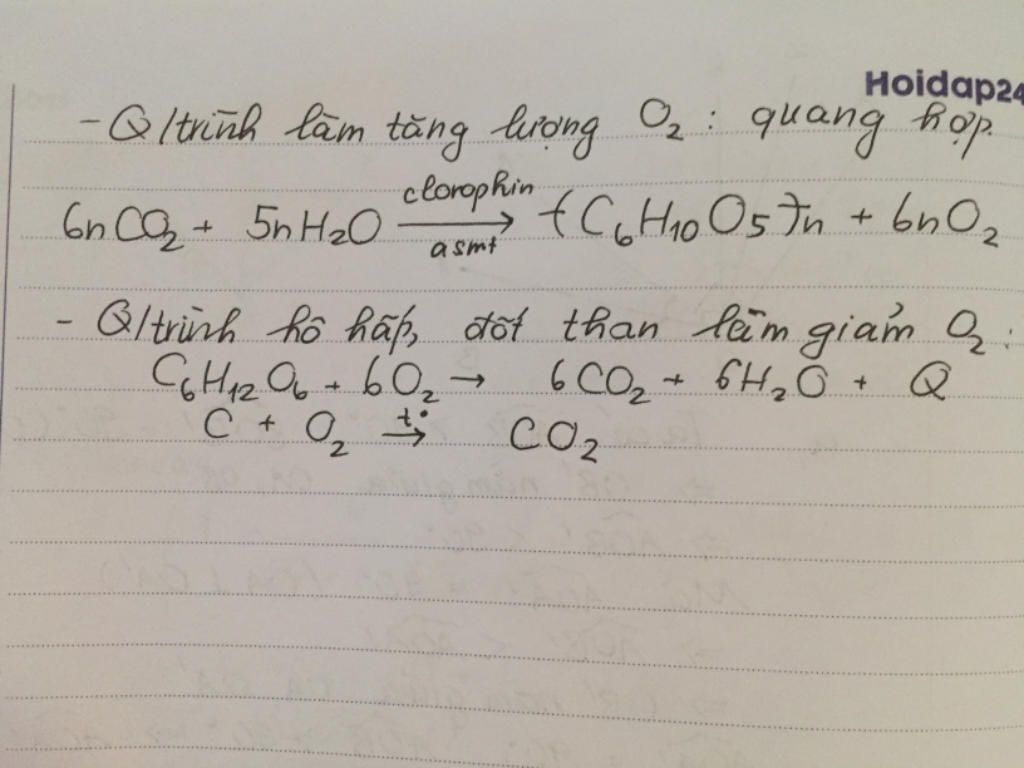 Hoidap24
- Q/trình làm tăng lượng O₂ : quang hợp.
clorophin
6nCO₂ + 5nH₂O ⟶ (C₆H₁₀O₅)n + 6nO₂
asmt
- Q/trình hô hấp, đốt than làm giảm O₂ :
C₆H₁₂O₆ + 6O₂ → 6CO₂ + 6H₂O + Q
C + O₂ →(t°) CO₂